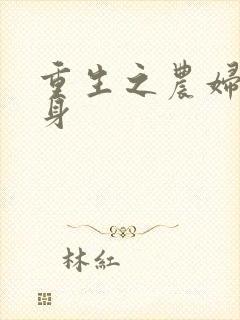 重生之農婦
身
林紅